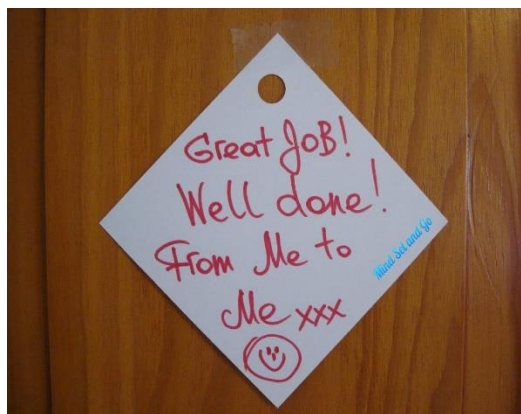 Great JOB!
Well done!
From Me to
Me xxx
Mind Set and Go